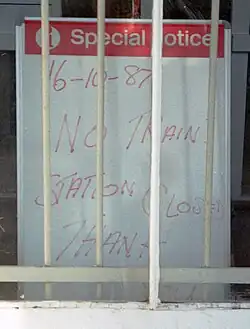 i Special Notice
16-10-87
NO TRAIN
STATION CLOSED
THANK